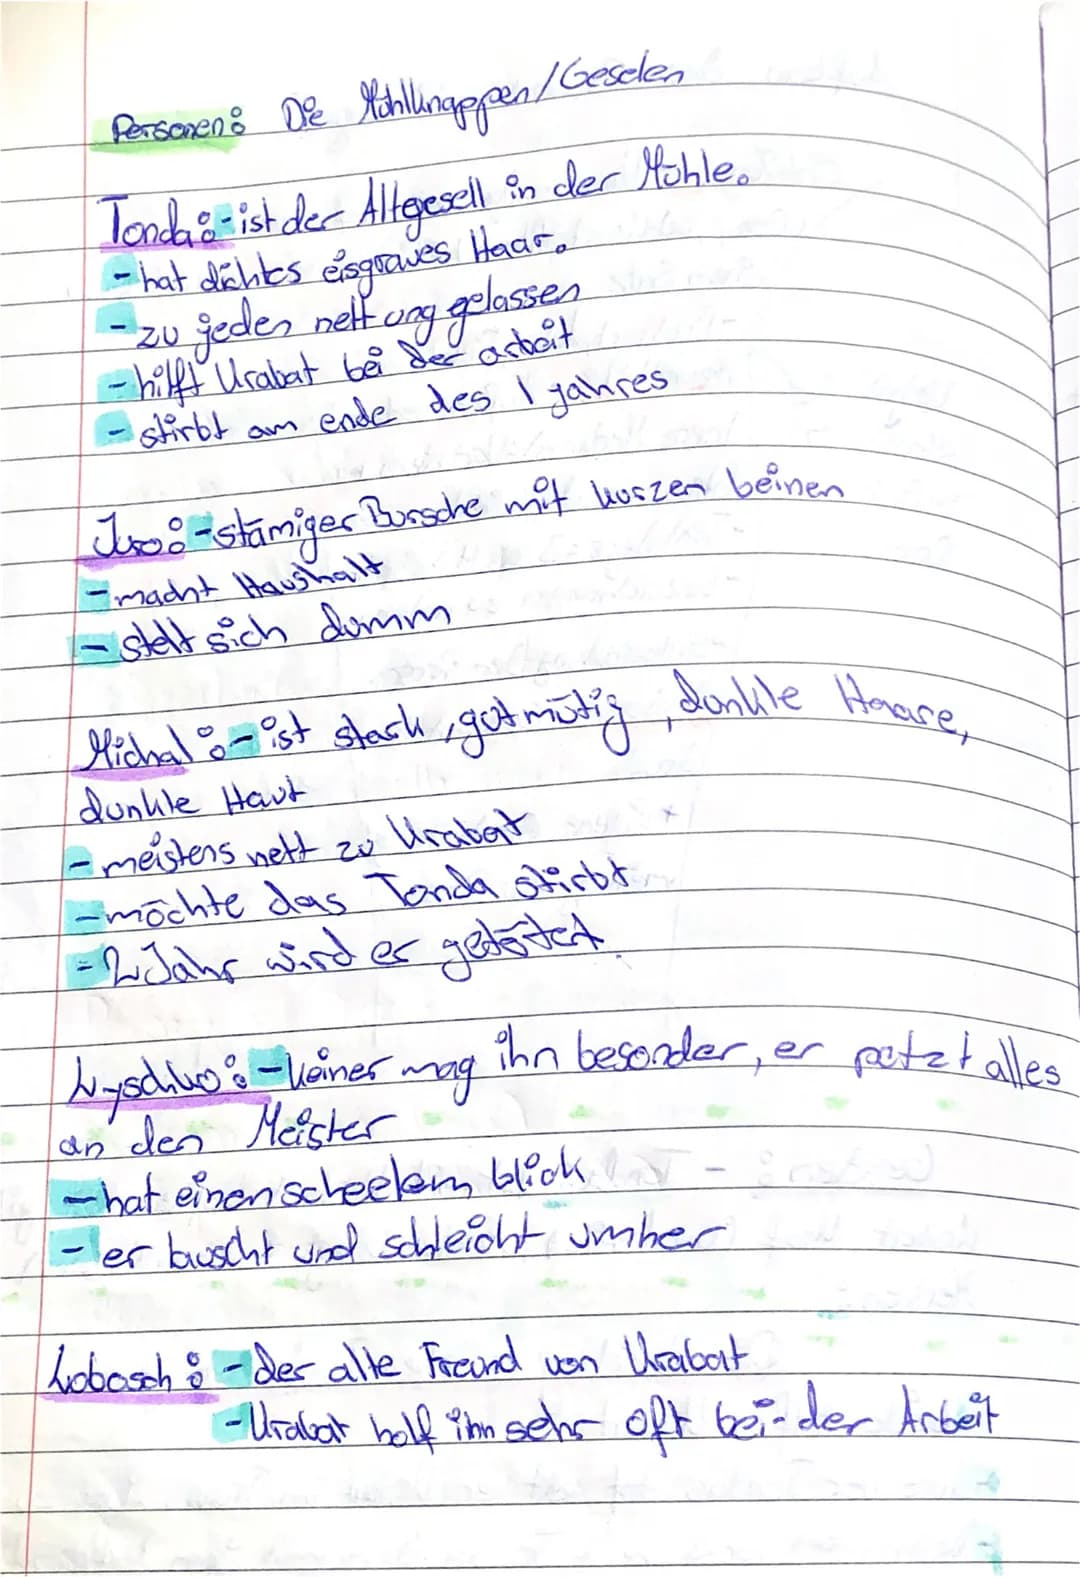 Personen: Die Mühlknappen/Geselen
Tonda: - ist der Altgesell in der Mühle.
- hat dichtes eisgraues Haar.
- zu jeden nett ung gelassen
- hilft Krabat bei der arbeit
- stirbt am ende des 1 jahres
Juro: - stämiger Bursche mit kurzen beinen
- macht Haushalt
- stelt sich dumm
Michal: - ist stark, gutmütig, dunkle Haare,
dunkle Haut
- meistens nett zu Krabat
- möchte das Tonda stirbt
- 2 Jahr wird er getötet
Lyschko: - keiner mag ihn besonder, er petzt alles
an den Meister
- hat einen scheelem blick
- er lauscht und schleicht umher
Lobosch: - der alte Freund von Krabat
- Krabat half ihn sehr oft bei der Arbeit